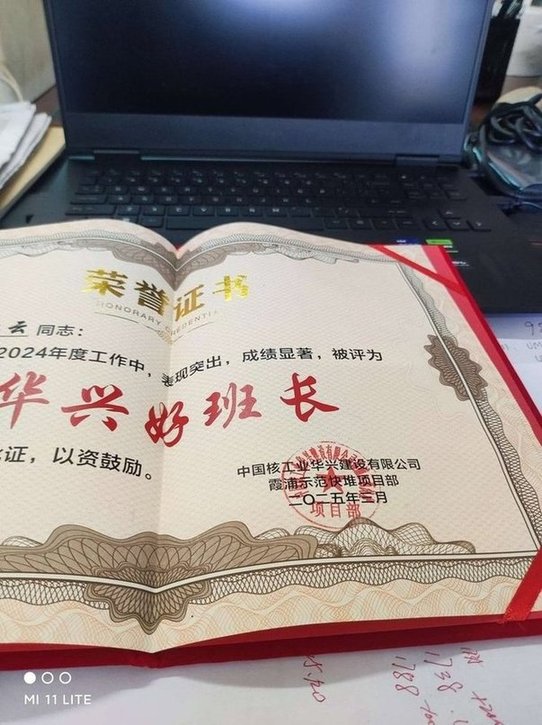 荣誉证书
HONORARY CREDENTIAL
云 同志：
2024年度工作中，表现突出，成绩显著，被评为
华兴好班长
证，以资鼓励。
中国核工业华兴建设有限公司
霞浦示范快堆项目部
二〇二五年三月
项目部
MI 11 LITE
92
UM
1738
1788